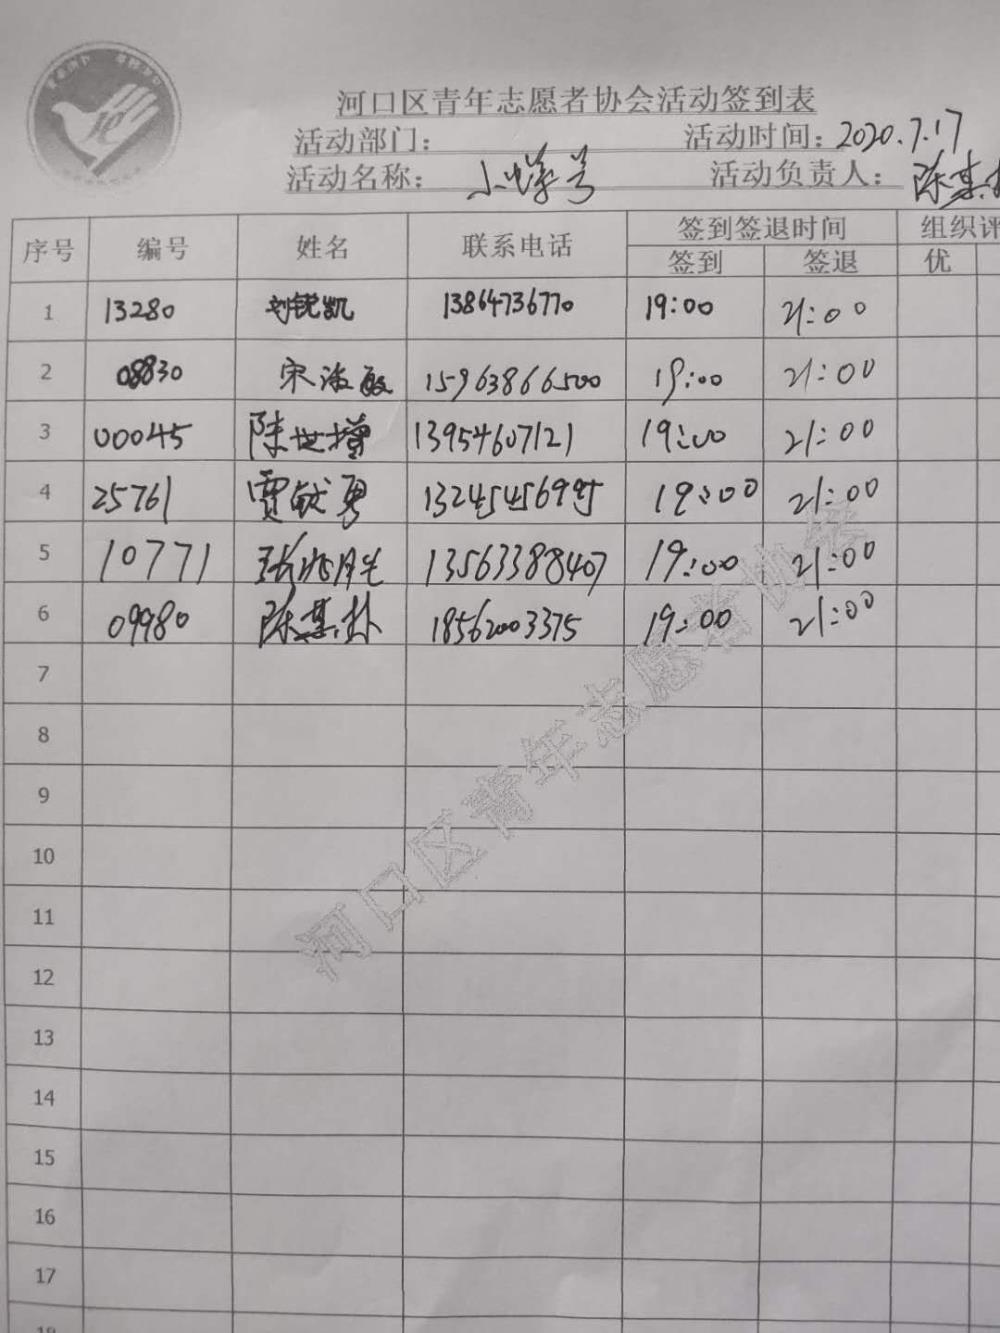 河口区青年志愿者协会活动签到表
活动部门： 活动时间：2020.7.17
活动名称： 小蜂号 活动负责人：陈其
序号 编号 姓名 联系电话 签到签退时间 组织评
签到 签退 优
1 13280 刘锐凯 13864736770 19:00 21:00
2 08830 宋 敏 15963866500 19:00 21:00
3 00045 陈世增 13954607121 19:00 21:00
4 25761 贾 勇 19:00 21:00
5 10771 13563388407 19:00 21:00
6 09980 陈其 18562003375 19:00 21:00
7
8
9
10
11
12
13
14
15
16
17
18
河口区青年志愿者协会